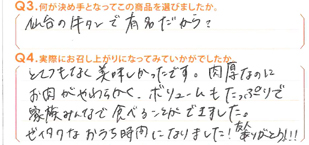 Q3.何が決め手となってこの商品を選びましたか。
仙台の牛タンで有名だから?
Q4.実際にお召し上がりになってみていかがでしたか。
とてつもなく美味しかったです。肉厚なのに
お肉がやわらかく、ボリュームもたっぷりで
家族みんなで食べることができました。
ゼイタクなおうち時間になりました!有難うございました!!